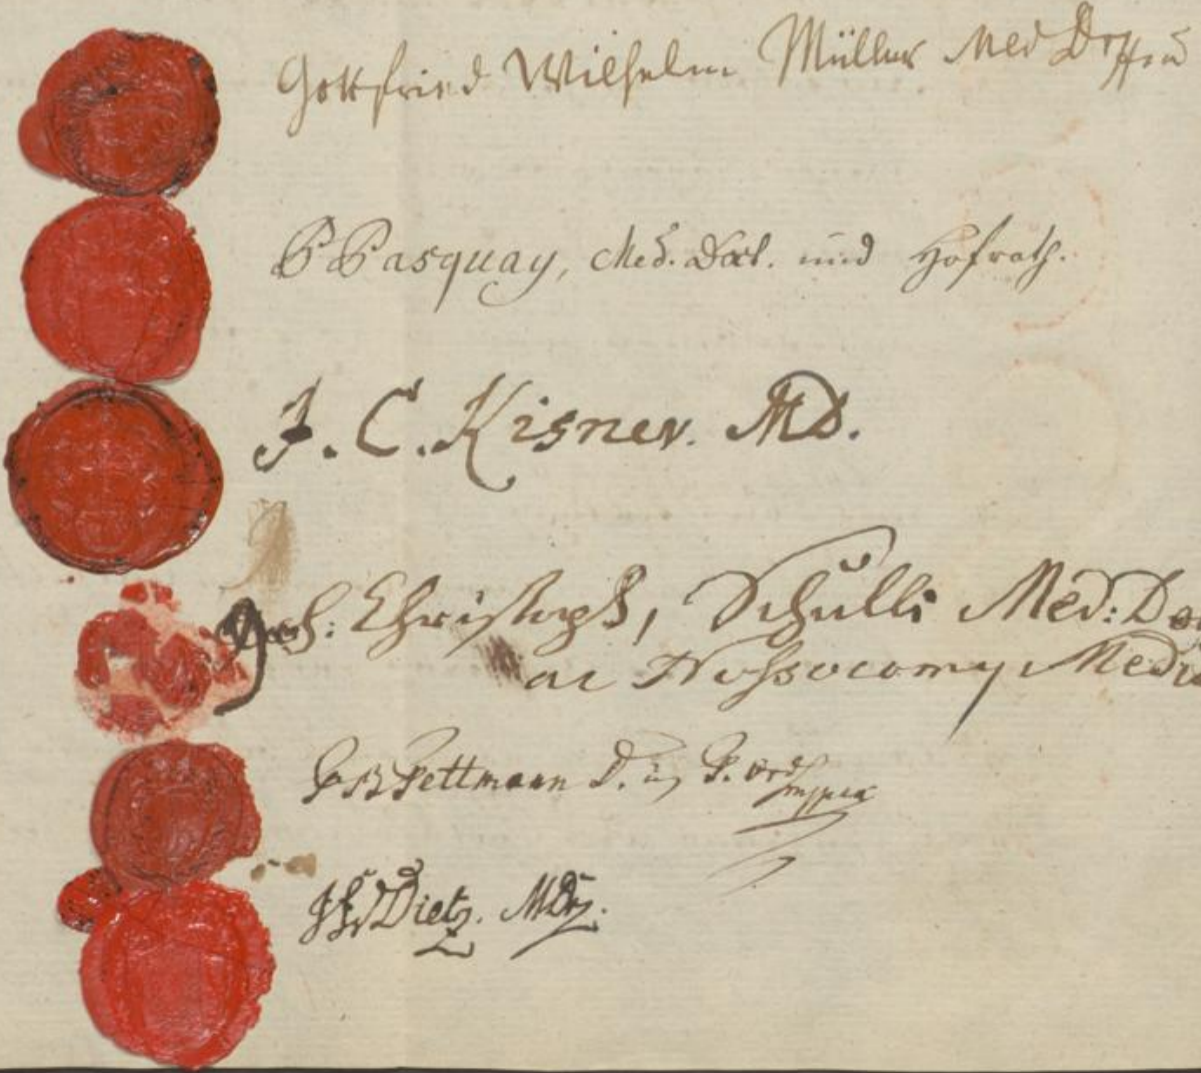 Gottfried Wilhelm Müller Med
P Pasquay, Med. Doct. und Hofrath.
J. C. Kisner. MD.
Joh: Christoph, Schulli Med: Do
ac Nossocomy Medic
Pettmann D.
Dietz. MD